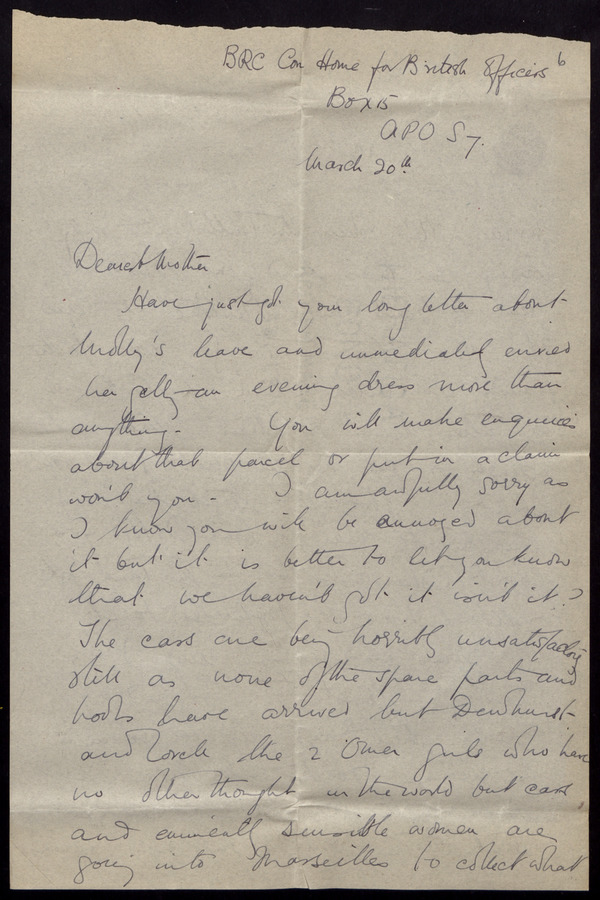 BRC Con Home for British Officers
Box 15
APO S 7.
March 20th
Dearest Mother
Have just got your long letter about
Molly's leave and immediately envied
her getting an evening dress more than
anything. You will make enquiries
about that parcel or put in a claim
won't you - I am awfully sorry as
I know you will be annoyed about
it but it is better to let you know
that we haven't got it isn't it?
The cars are being horribly unsatisfactory
still as none of the spare parts and
tools have arrived but Dewhurst
and the 2 other girls who have
no other thought in the world but cars
and eminently sensible women are
going into Marseilles to collect what